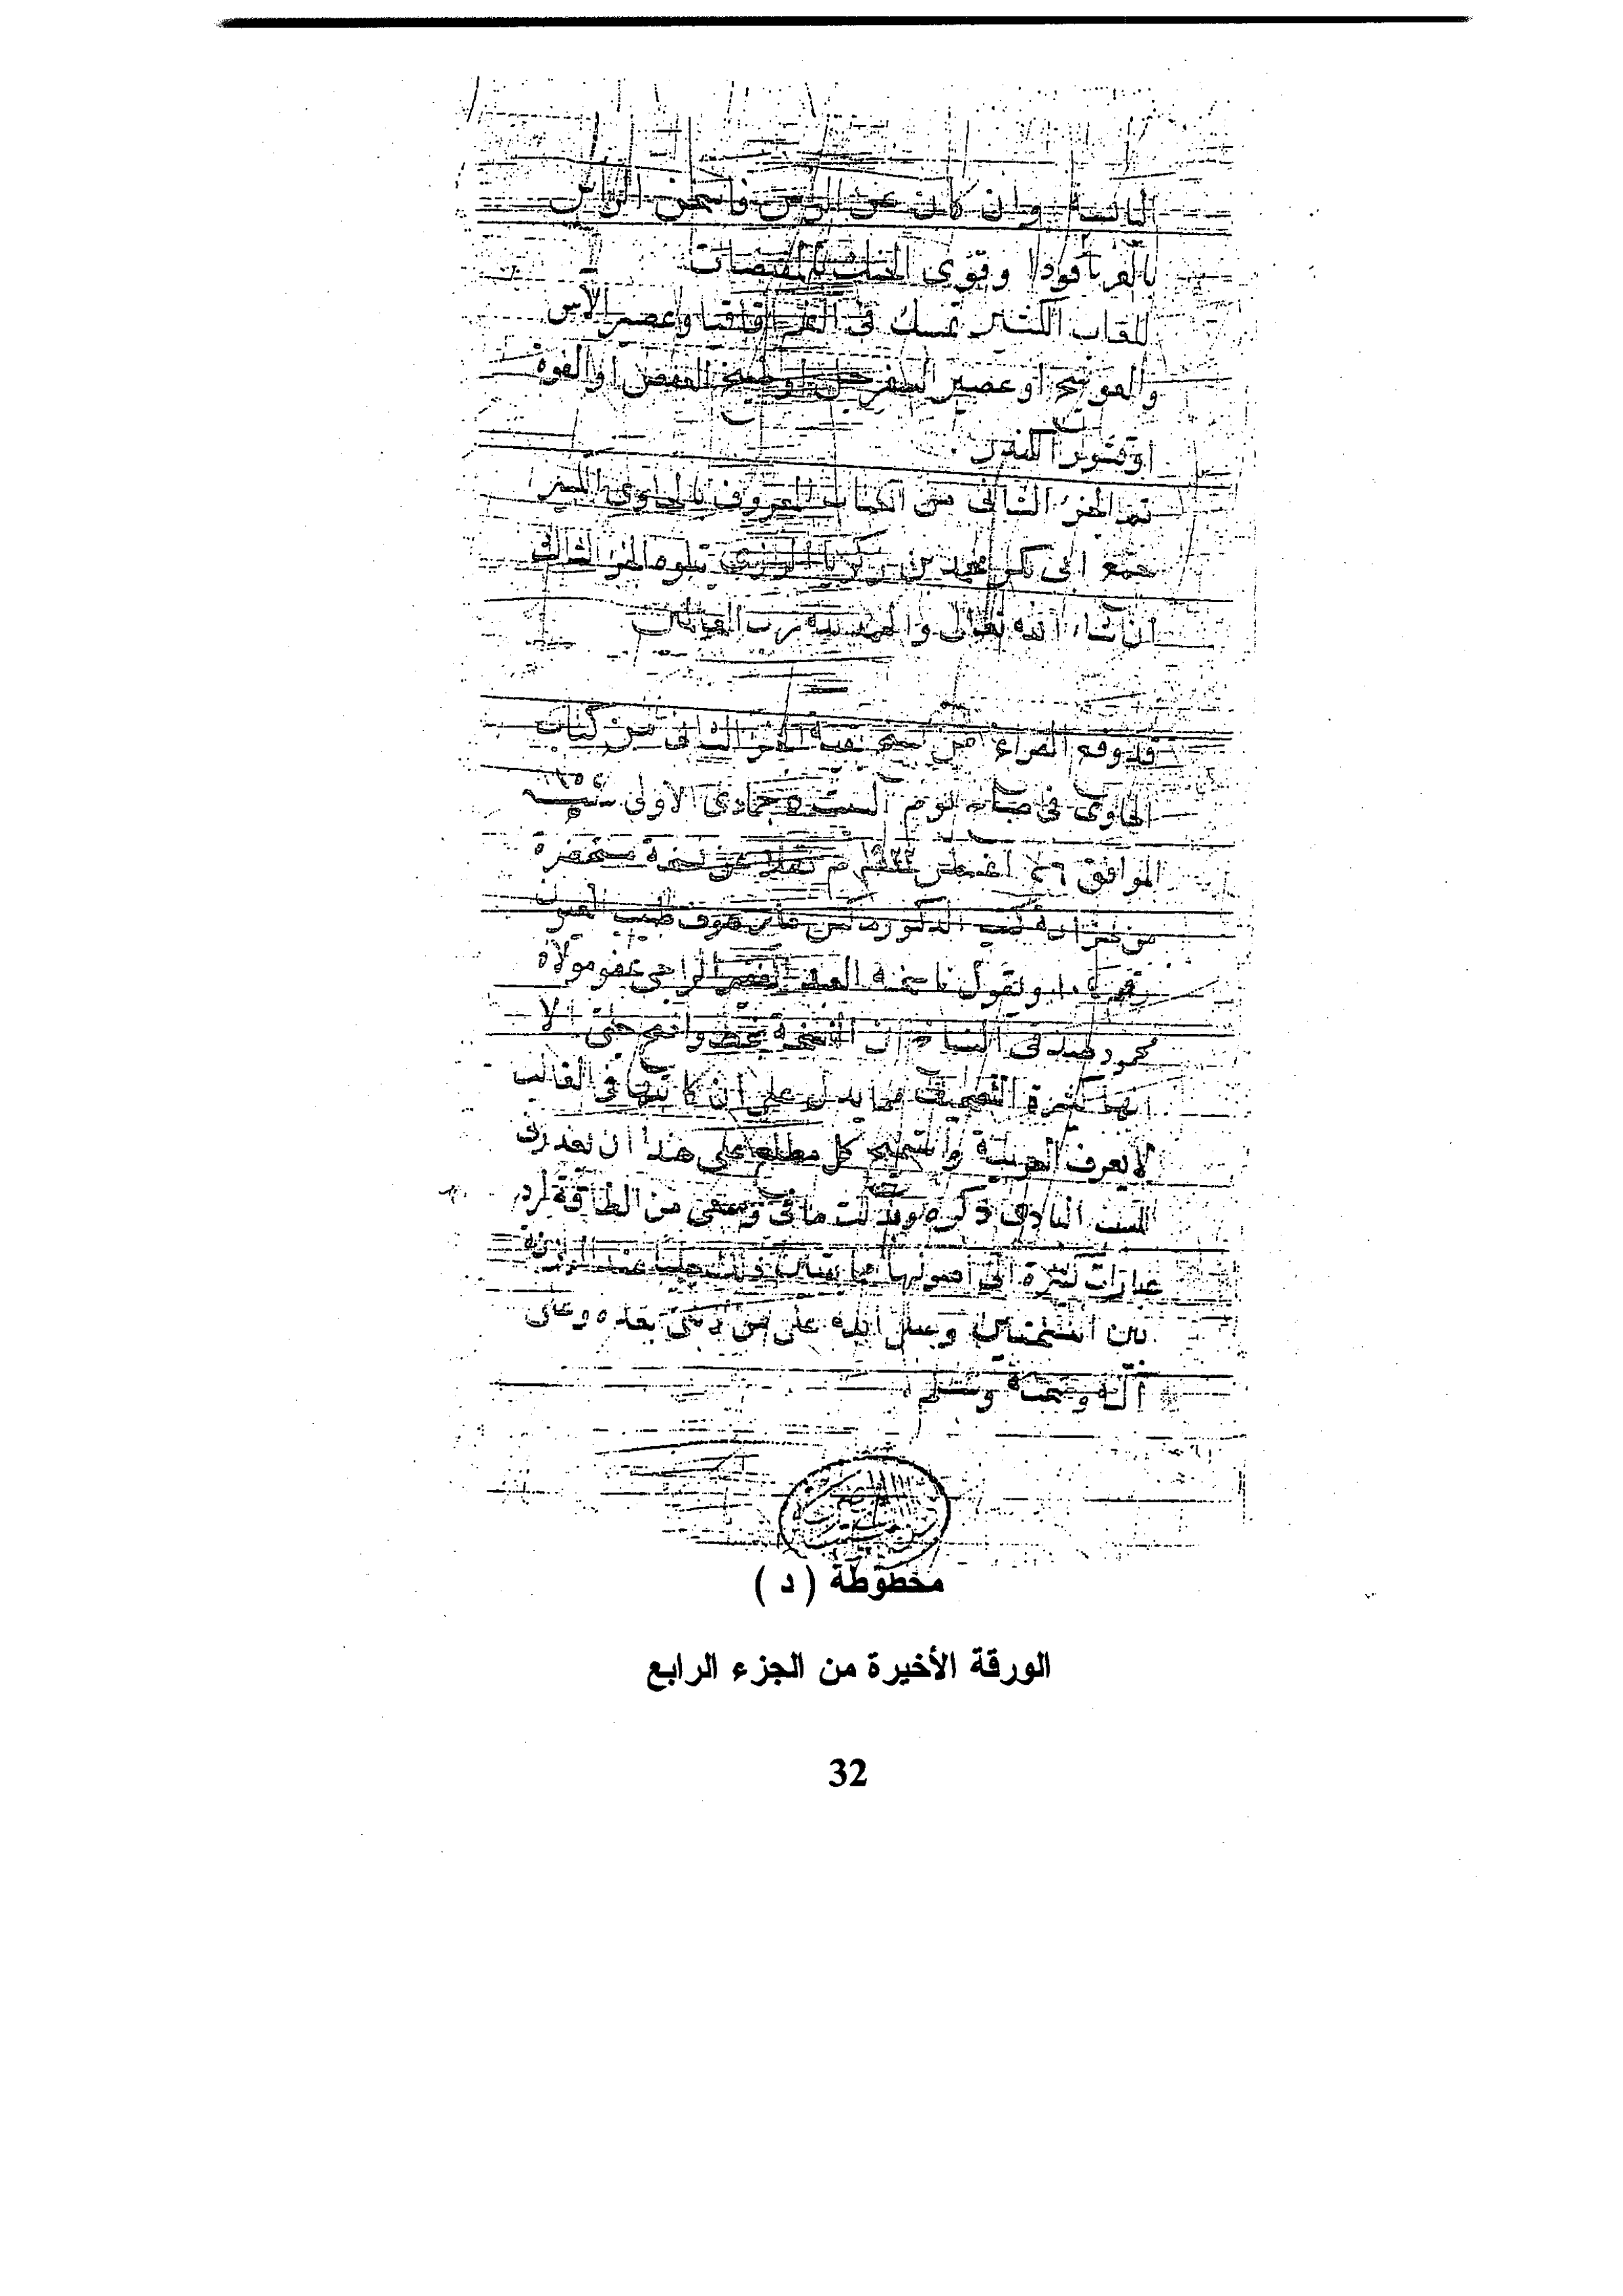 اليابسة وان كان عن الراس فاسخن الراس
وقوى الحنك بالمقبضات
للعاب الكثير تمسك فى الفم اقاقيا وعصير الآس
والعوسج او عصير السفرجل او طبيخ العفص او الفوة
او قشور الكندر
تم الجزء الثانى من الكتاب المعروف بالحاوى الكبير
جمع ابى بكر محمد بن زكريا الرازى يتلوه الجزء الثالث
ان شاء الله تعالى والحمد لله رب العالمين
قد وقع الفراغ من الجزء الثانى من كتاب
الحاوى فى صباح يوم السبت ٥ جمادى الاولى سنة
الموافق ٢٦ اغسطس م نقلا عن نسخة مستحضرة
من خزانة كتب الدكتور ماكس مايرهوف طبيب العيون
ويقول ناسخه العبد الفقير الراجى عفو مولاه
محمود صدقى النساخ ان النسخة بخط واضح
كثيرة التصحيف مما يدل على ان كاتبها فى الغالب
لا يعرف العربية واستميح كل مطلع على هذا ان يعذرنى
للسبب البادى ذكره وبذلت ما فى وسعى من الطاقة لرد
عبارات كثيرة الى اصولها
بين النسختين وصلى الله على من لا نبى بعده وعلى
آله وصحبه وسلم
مخطوطة ( د )
الورقة الأخيرة من الجزء الرابع
32